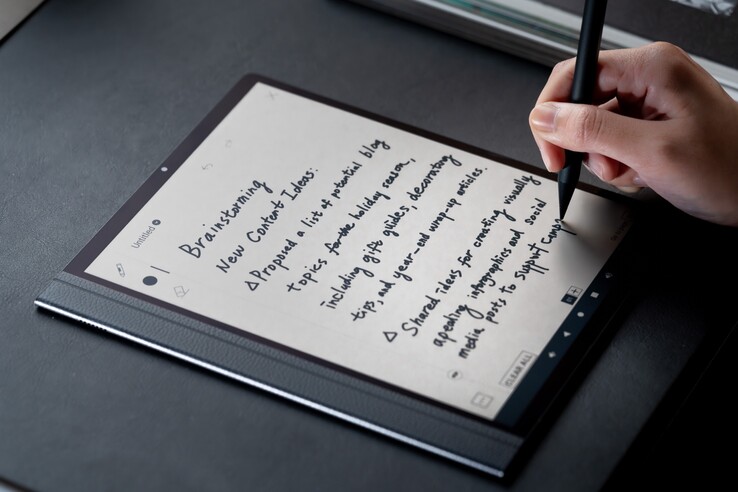 Untitled
Brainstorming
New Content Ideas:
△Proposed a list of potential blog
topics for the holiday season,
including gift guides, decorating
tips, and year-end wrap-up articles.
△ Shared ideas for creating visually
apealing infographics and social
media posts to support camp
CLEAR ALL